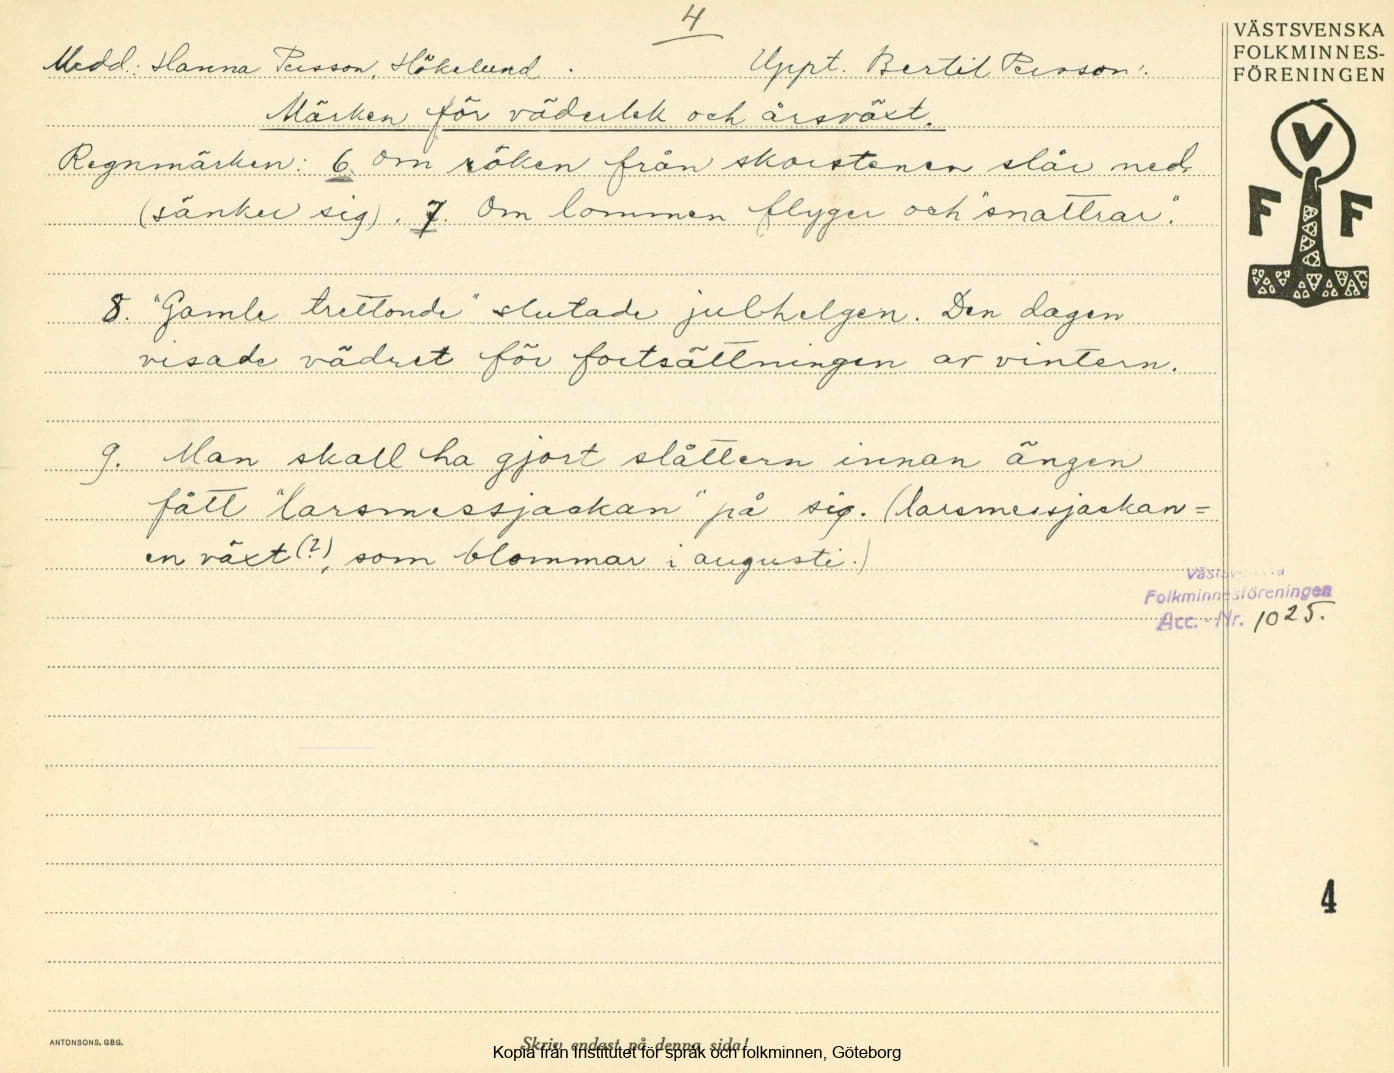 4
Medd.: Hanna Persson, Hökelund. Uppt. Bertil Persson.
Märken för väderlek och årsväxt.
Regnmärken: 6. Om röken från skorstenen slår ned
(sänker sig). 7. Om lommen flyger och "snattrar".
8. "Gamle trettonde" slutade julhelgen. Den dagen
visade vädret för fortsättningen av vintern.
9. Man skall ha gjort slåttern innan ängen
fått "larsmessjackan" på sig. (larsmessjackan =
en växt(?), som blommar i augusti.)
VÄSTSVENSKA
FOLKMINNES-
FÖRENINGEN
V
F F
Västsvenska
Folkminnesföreningen
Acc. - Nr. 1025.
4
ANTONSONS, GBG.
Skriv endast på denna sida!
Kopia från Institutet för språk och folkminnen, Göteborg